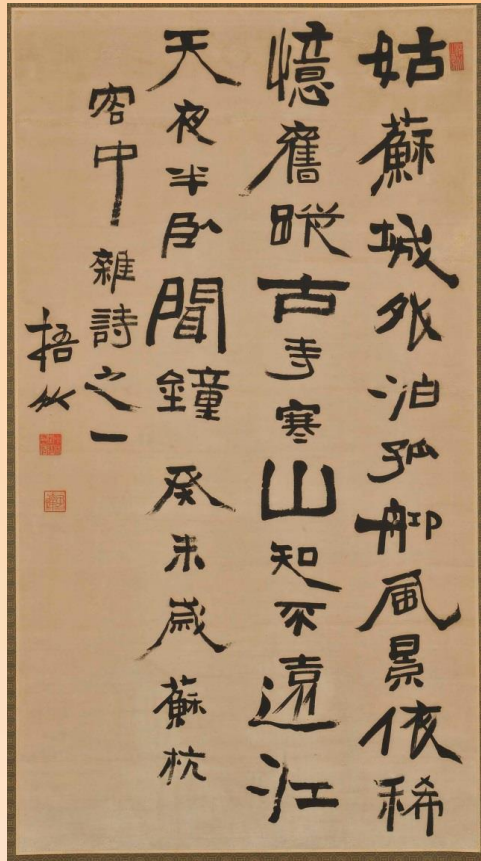 姑蘇城外泊孤風景依稀
憶舊蹤古寺寒山知不遠江
天夜半臥聞鐘 癸未歳蘇杭
客中雜詩之一
梧竹